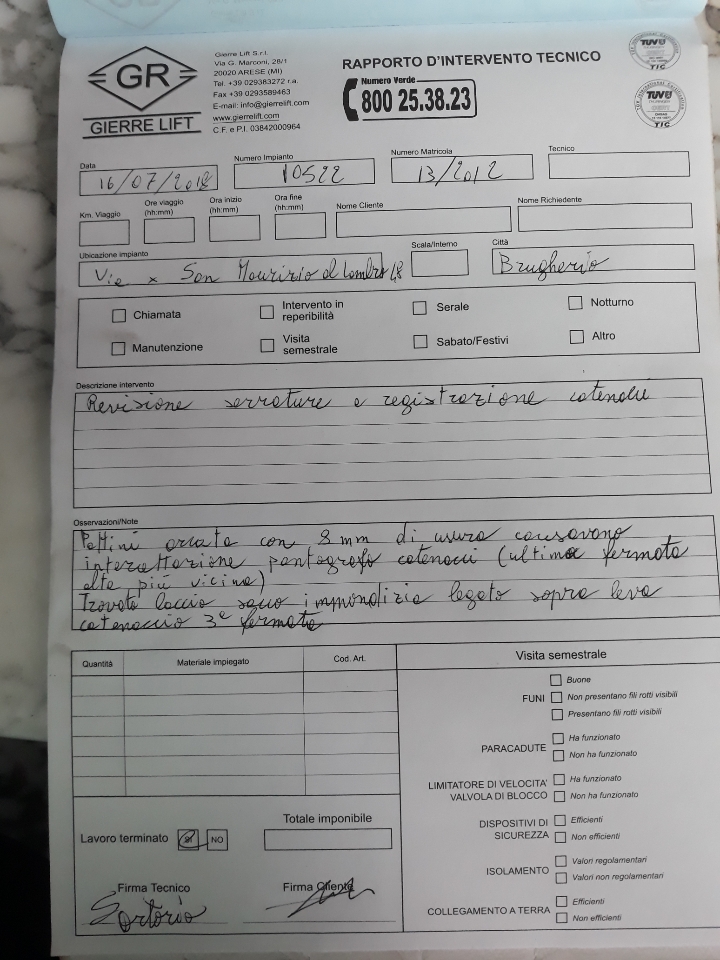 GR
GIERRE LIFT
Gierre Lift S.r.l.
Via G. Marconi, 28/1
20020 ARESE (MI)
Tel. +39 029383272 r.a.
Fax +39 0293589463
E-mail: info@gierrelift.com
www.gierrelift.com
C.F. e P.I. 03842000964
RAPPORTO D'INTERVENTO TECNICO
Numero Verde
800 25.38.23
TÜV
TIC
TÜV
TIC
Data
16/07/2018
Numero Impianto
10522
Numero Matricola
13/2012
Tecnico
Km. Viaggio
Ore viaggio (hh:mm)
Ora inizio (hh:mm)
Ora fine (hh:mm)
Nome Cliente
Nome Richiedente
Ubicazione impianto
Via x San Maurizio al Lambro 48
Scala/Interno
Città
Brugherio
Chiamata
Intervento in reperibilità
Serale
Notturno
Manutenzione
Visita semestrale
Sabato/Festivi
Altro
Descrizione intervento
Revisione serrature e registrazione catenacci
Osservazioni/Note
Pattini arcata con 8 mm di usura causavano
interettazione pantografo catenacci (ultima fermata
alta più vicina)
Trovato laccio sacco immondizia legato sopra leva
catenaccio 3ª fermata
Quantità
Materiale impiegato
Cod. Art.
Visita semestrale
FUNI
Buone
Non presentano fili rotti visibili
Presentano fili rotti visibili
PARACADUTE
Ha funzionato
Non ha funzionato
LIMITATORE DI VELOCITA'
VALVOLA DI BLOCCO
Ha funzionato
Non ha funzionato
DISPOSITIVI DI
SICUREZZA
Efficienti
Non efficienti
ISOLAMENTO
Valori regolamentari
Valori non regolamentari
COLLEGAMENTO A TERRA
Efficienti
Non efficienti
Lavoro terminato SI NO
Totale imponibile
Firma Tecnico
Sartorio
Firma Cliente